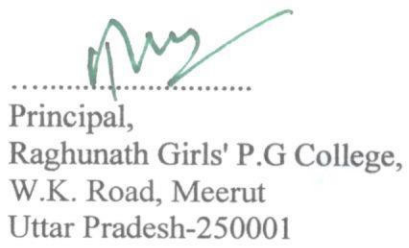 ....................................
Principal,
Raghunath Girls' P.G College,
W.K. Road, Meerut
Uttar Pradesh-250001